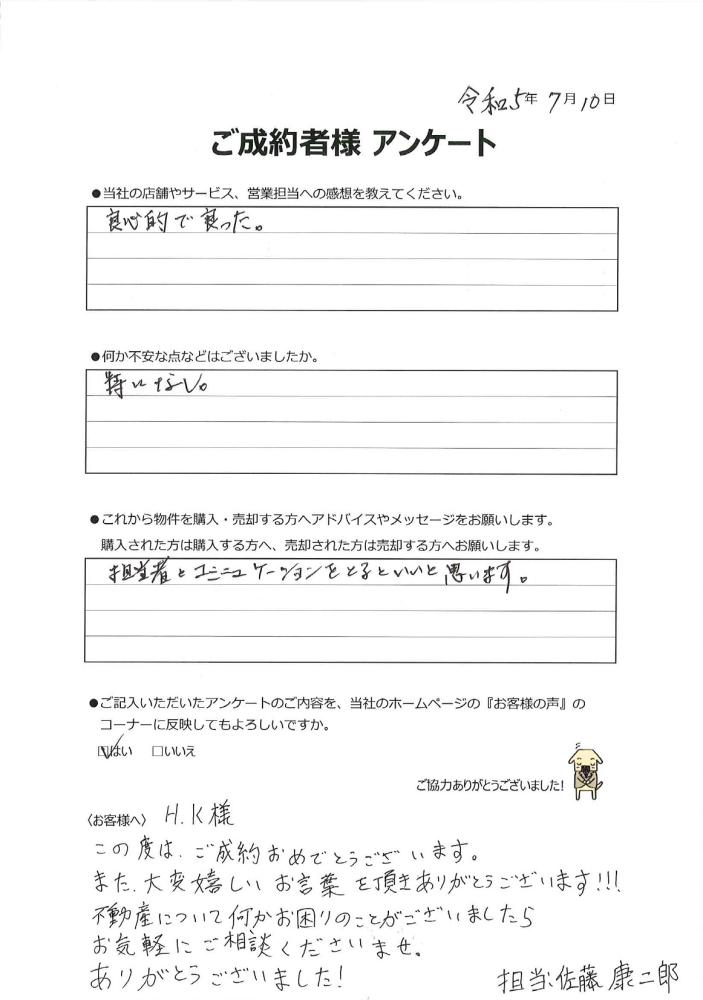 令和5年 7月10日
ご成約者様 アンケート
●当社の店舗やサービス、営業担当への感想を教えてください。
良心的で良った。
●何か不安な点などはございましたか。
特になし。
●これから物件を購入・売却する方へアドバイスやメッセージをお願いします。
購入された方は購入する方へ、売却された方は売却する方へお願いします。
担当者とコミニュケーションをとるといいと思います。
●ご記入いただいたアンケートのご内容を、当社のホームページの『お客様の声』の
コーナーに反映してもよろしいですか。
☑はい □いいえ
ご協力ありがとうございました!
〈お客様へ〉 H.K様
この度は、ご成約おめでとうございます。
また、大変嬉しいお言葉を頂きありがとうございます!!!
不動産について何かお困りのことがございましたら
お気軽にご相談くださいませ。
ありがとうございました!
担当:佐藤康二郎